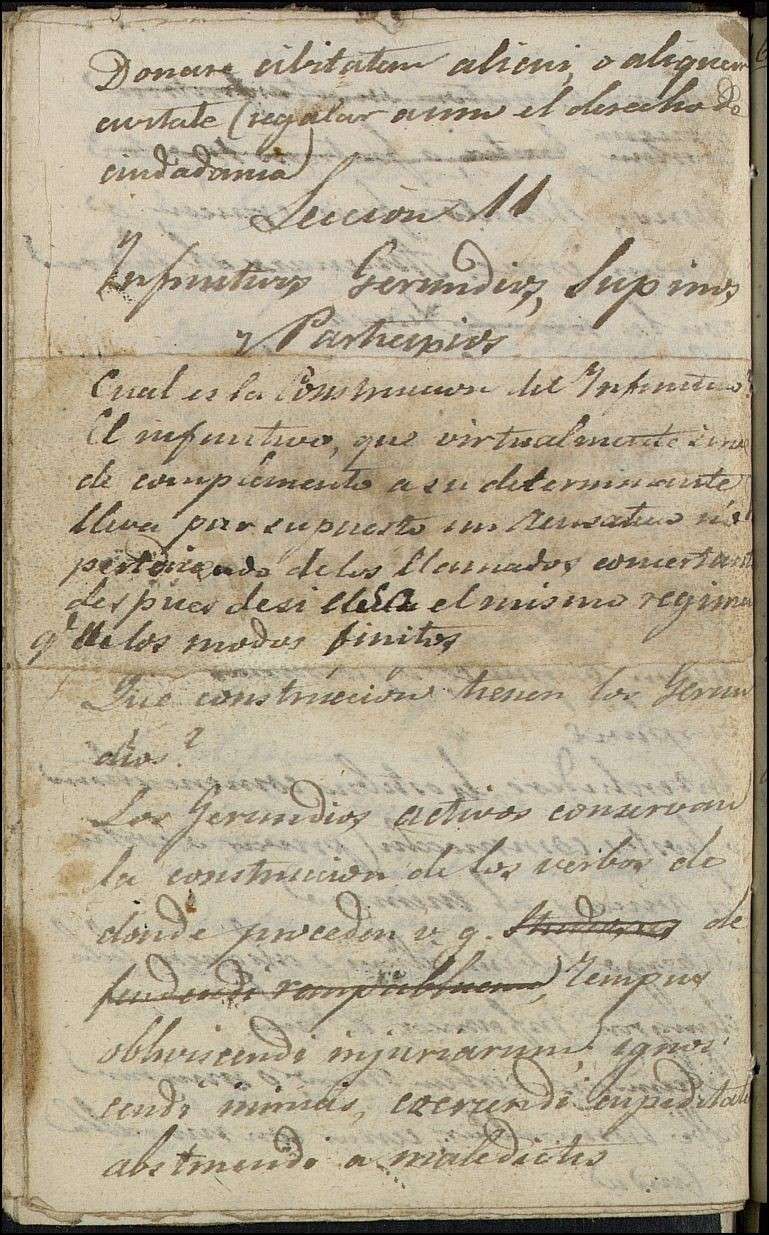 Donare cibitatem alicui, o aliquem
civitate (regalar a uno el derecho de
ciudadania)
Leccion 11
Infinitivos Gerundios, Supinos,
y Participios
Cual es la Construccion del Infinitivo?
El infinitivo, que virtualmente sirve
de complemento a su determinante
lleva por supuesto un acusativo no
de los llamados concertant
despues de si lleva el mismo regimen
qe de los modos finitos
Que construccion tienen los Gerun
dios?
Los Gerundios activos conservan
la construccion de los verbos de
donde proceden v. g. de
fendendi Tempus
obliviscendi injuriarum, ignos
cendi inimicis, coercendi cupiditate
abstinendi a maledictis